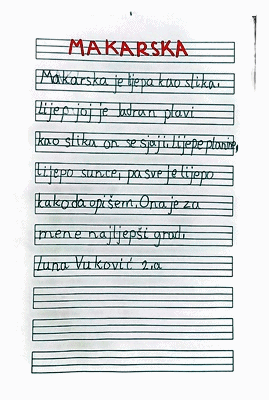 MAKARSKA
Makarska je lijepa kao slika.
Lijep joj je Jadran plavi
kao slika on se sjaji. Lijepe planine,
lijepo sunce, pa sve je lijepo
kako da opišem. Ona je za
mene najljepši grad.
Luna Vuković 2.a